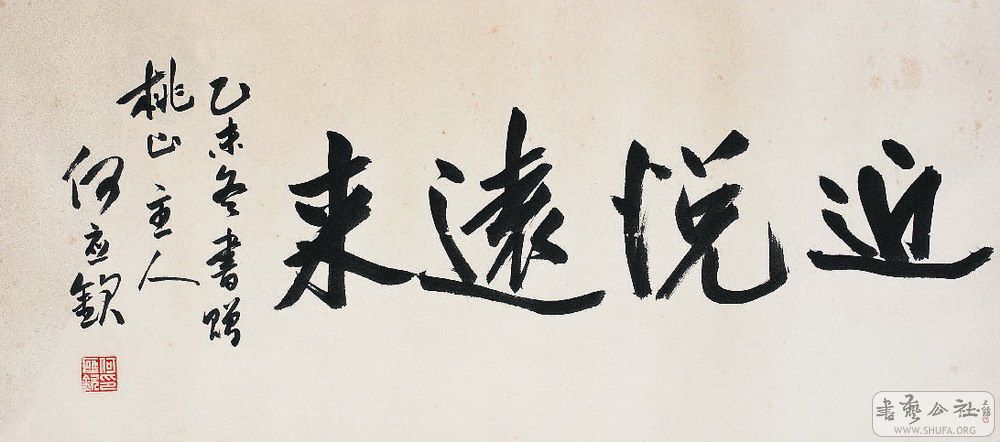 近悦遠來
乙未冬書贈
桃山主人
何應欽
何應欽印
書藝公社
WWW.SHUFA.ORG